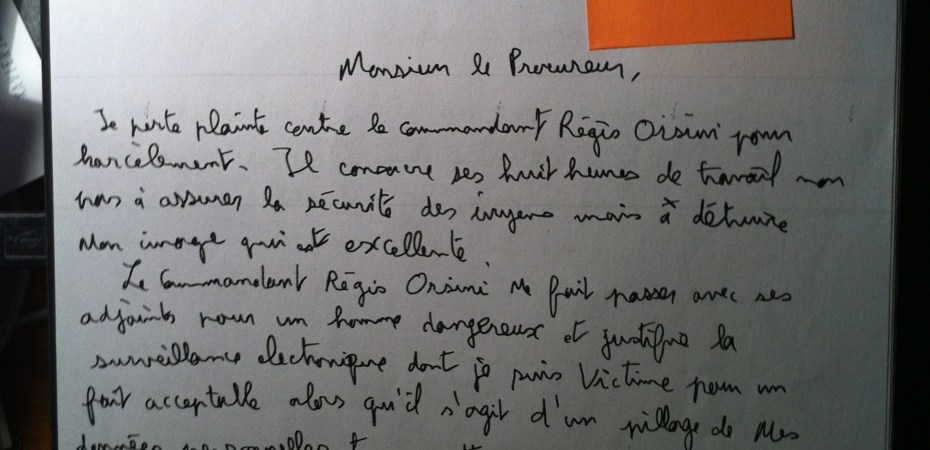 Monsieur le Procureur,
Je porte plainte contre le commandant Régis Orsini pour
harcèlement. Il consacre ses huit heures de travail non
pas à assurer la sécurité des mais à détruire
mon image qui est excellente.
Le Commandant Régis Orsini me fait passer avec ses
adjoints pour un homme dangereux et justifie la
surveillance electronique dont je suis Victime pour un
fait acceptable alors qu'il s'agit d'un pillage de Mes
données personnelles